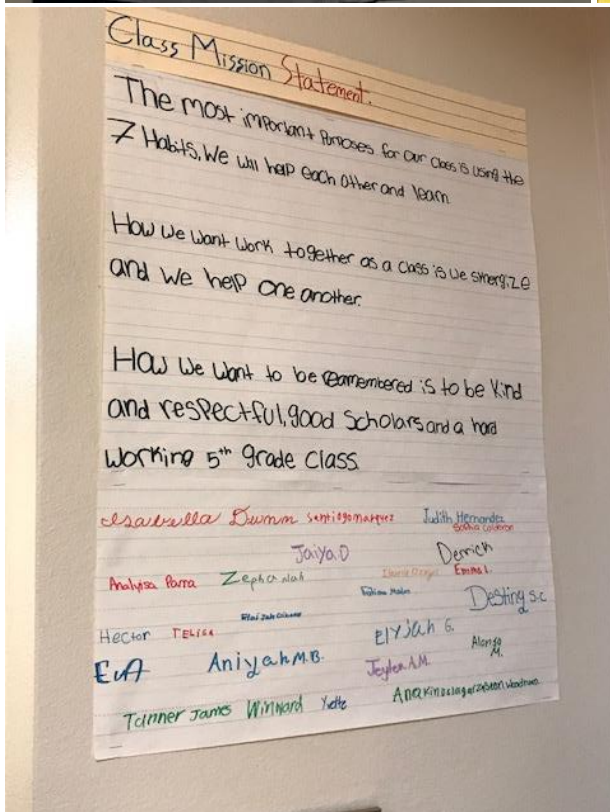 Class Mission Statement.
The most important Purposes for our class is using the
7 Habits. We will help each other and learn
How we want work together as a class is we synergize
and we help one another.
How we want to be reamembered is to be kind
and respectful, good Scholars and a hard
working 5th grade class.
Isabella Dumm Santiago marquez Judith Hernandez
Sophia Calderon
Jaiya.D Derrick
Analyisa Parra Zephaniah Emma L.
Destiny S.C
Hector TELISA Elyjah G.
Alonzo M.
EvA Aniyah M.B. Jeylen A.M.
Tanner James Winward Yvette